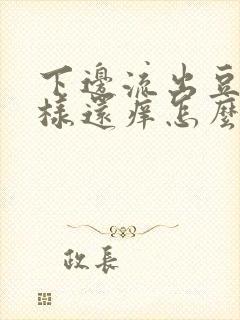 下邊流出豆
樣還痒怎麼
政長